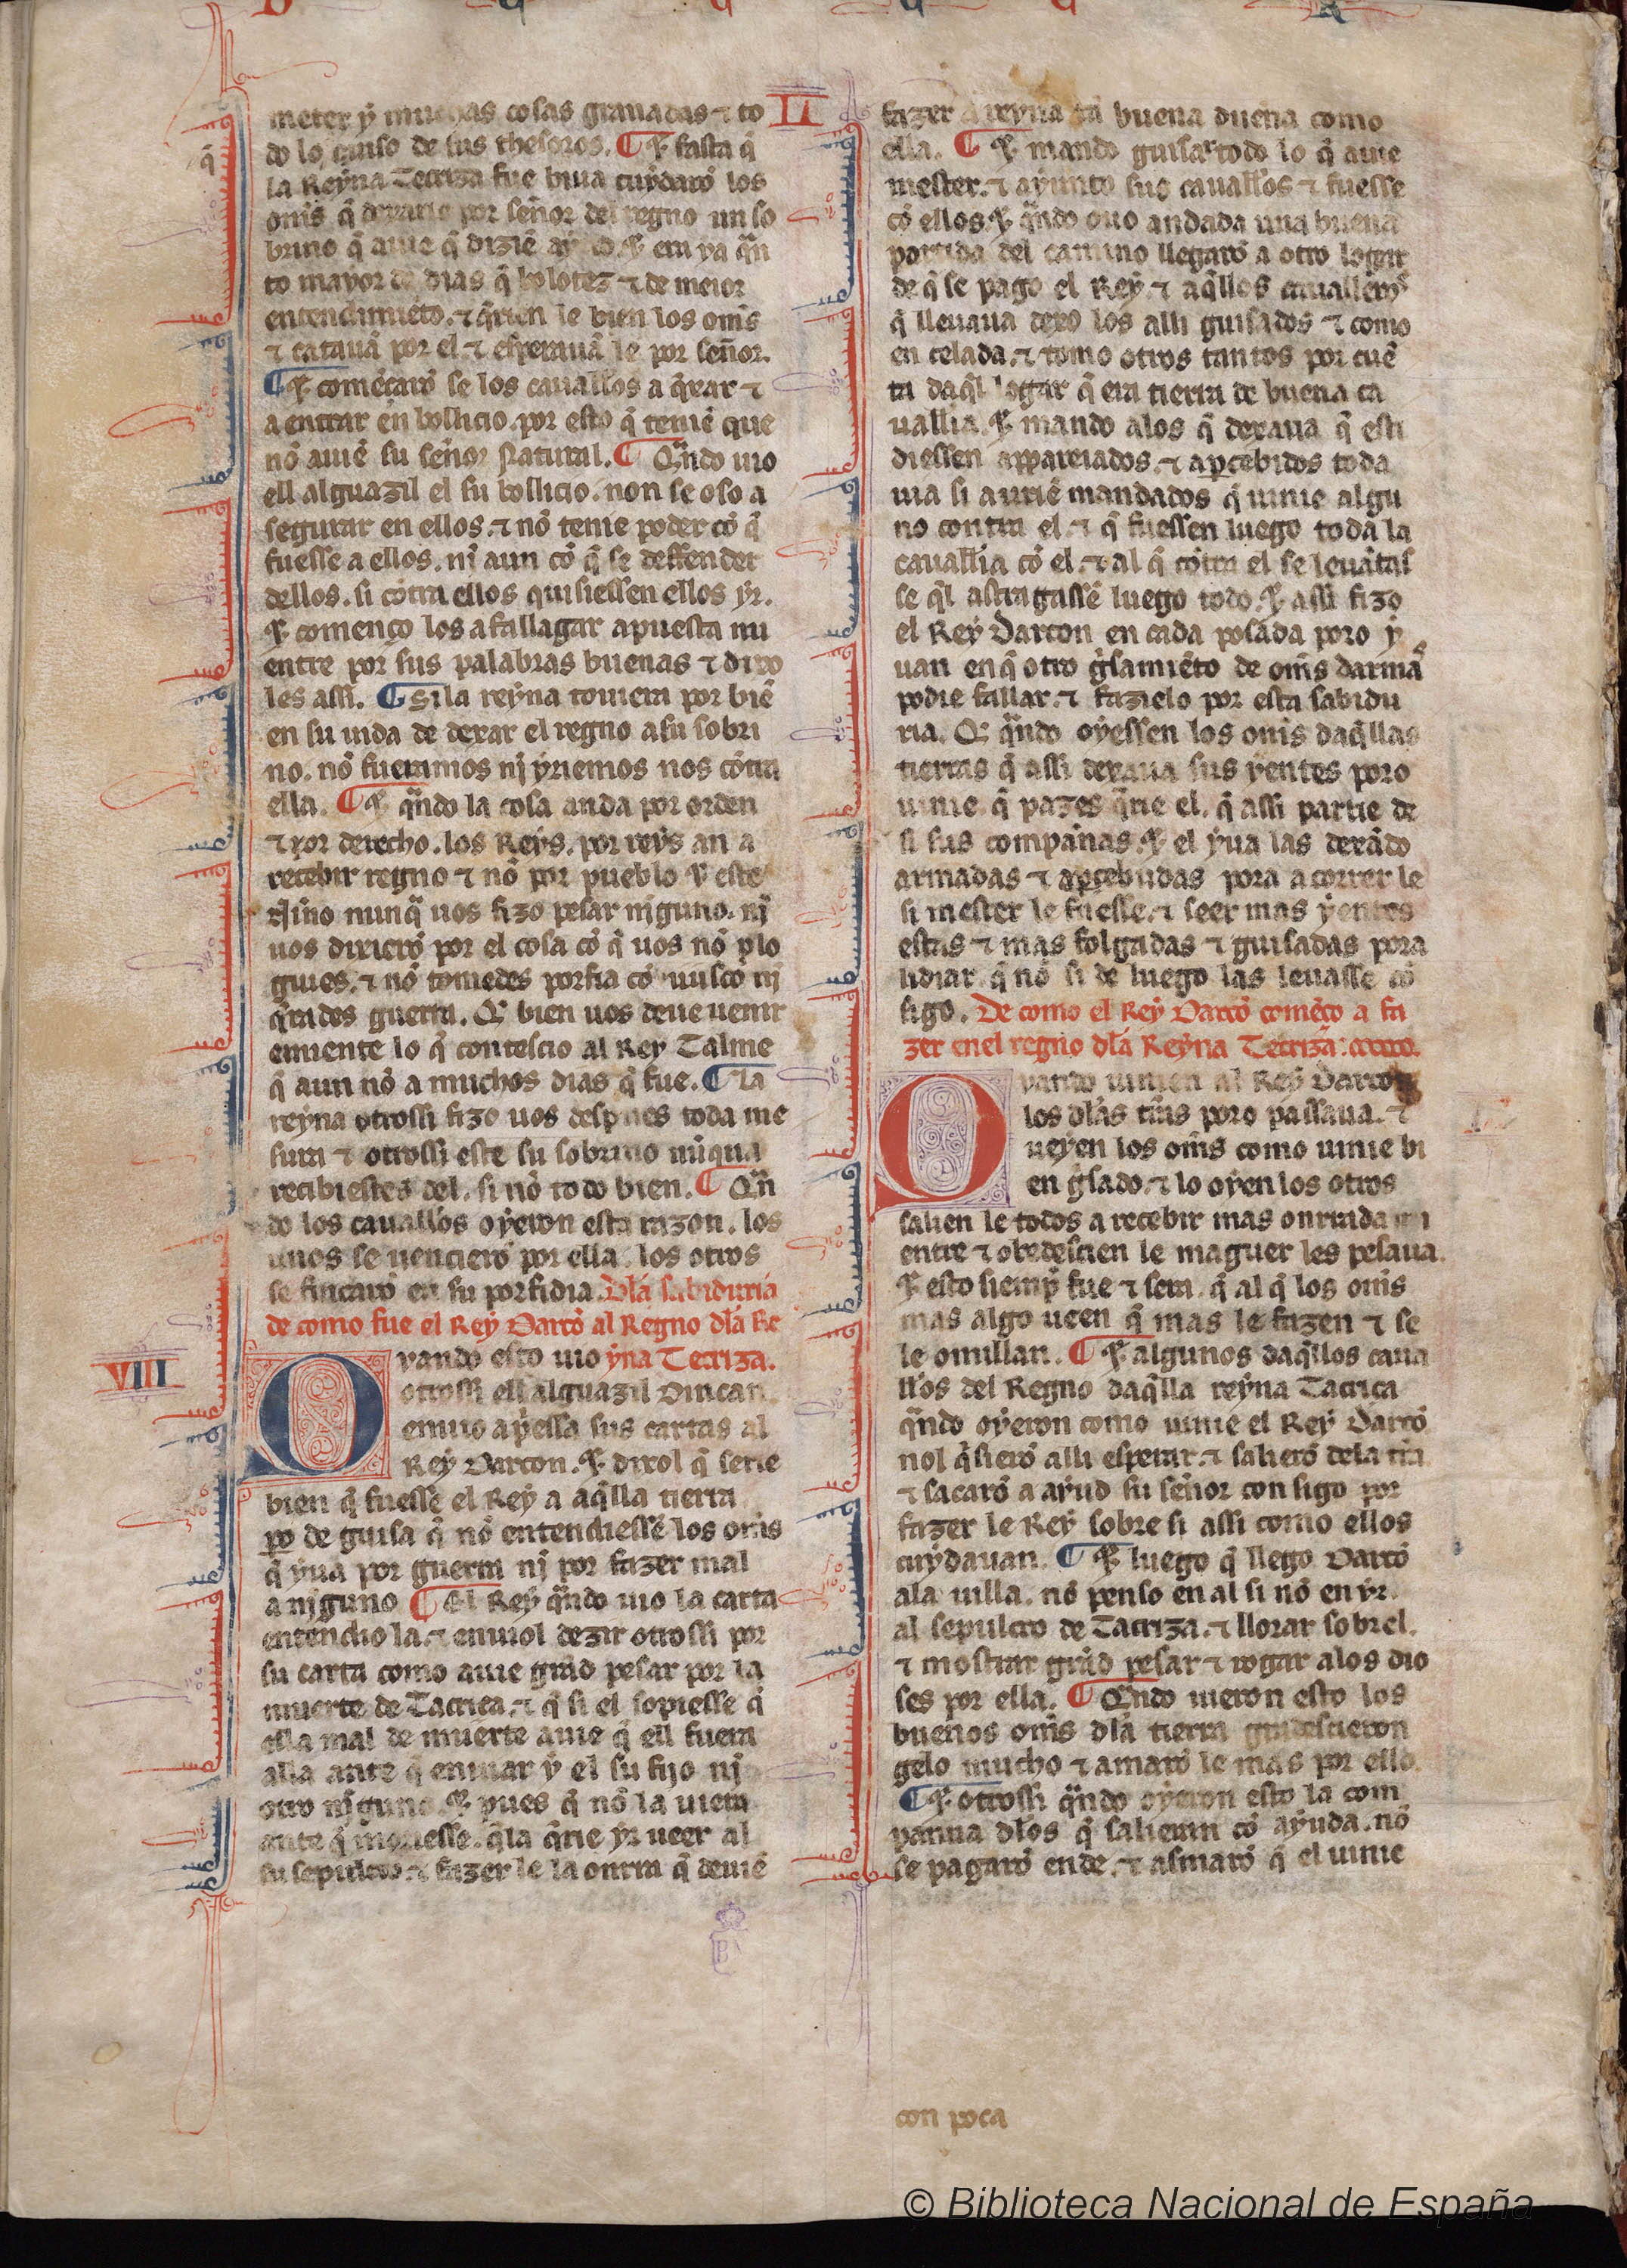 II
meter y muchas cosas granadas ⁊ to
do lo quiso de sus thesoros. ¶ ⁊ fasta q̃
la Reyna Tecriza fue biua cuydarõ los
om̃s q̃ dexarie por señor del regno un so
brino q̃ auie q̃ dizíe ayud. ⁊ era ya q̃n
to mayor de dias q̃ bolotez ⁊ de meior
entendimiẽto. ⁊ q̃rien le bien los om̃s
⁊ catauã por el. ⁊ esperauã le por señor.
¶ ⁊ comẽçarõ se los cauałłos a q̃xar ⁊
a entrar en bollicio. por esto q̃ teniẽ que
nõ auiẽ su señor natural. ¶ Qñdo uio
ell alguazil el su bollicio. non se oso a
segurar en ellos. ⁊ nõ tenie poder cõ q̃
fuesse a ellos. nj aun cõ q̃ se deffender
dellos. si cõtra ellos quisiessen ellos yr.
⁊ començo los a fallagar apuesta mi
entre por sus palabras buenas ⁊ dixo
les assi. ¶ Si la reyna touiera por biẽ
en su uida de dexar el regno a su sobri
no. nõ fueramos nj yriemos nos cõtra
ella. ¶ ⁊ q̃ndo la cosa anda por orden
⁊ por derecho. los Reys. por reys an a
recebir regno ⁊ nõ por pueblo ⁊ este
njño nunq̃ uos fizo pesar njguno. nj
uos dixierõ por el cosa cõ q̃ uos nõ plo
guies. ⁊ nõ tomedes porfia cõ nusco nj
q̃rades guerra. Ca bien uos deue uenir
emiente lo q̃ contescio al Rey Talme
q̃ aun nõ a muchos dias q̃ fue. ¶ La
reyna otrossi fizo uos despues toda me
sura ⁊ otrossi este su sobrino nũqua
recibiestes del. si nõ todo bien. ¶ Qñ
do los cauałłos oyeron esta razon. los
unos se uencierõ por ella. los otros
se fincarõ en su porfidia. Dla sabiduria
de como fue el Rey Darcõ al Regno dla Re
VIII
Quando esto uio yna Tecriza.
otrossi ell alguazil Dincar.
enuio apriessa sus cartas al
Rey Darcon. ⁊ dixol q̃ serie
bien q̃ fuesse el Rey a aq̃lla tierra
pero de guisa q̃ nõ entendiessẽ los om̃s
q̃ yua por guerra nj por fazer mal
a njguno ¶ El Rey q̃ndo uio la carta
entendio la. ⁊ enuiol dezir otrossi por
su carta como auie grãd pesar por la
muerte de Tacrica. ⁊ q̃ si el sopiesse q̃
ella mal de muerte auie q̃ ell fuera
alla ante q̃ enuiar y el su fijo nj
otro njguno. ⁊ pues q̃ nõ la uiera
ante q̃ moriesse. q̃la q̃rie yr ueer al
su sepulcro. ⁊ fazer le la onrra q̃ deuiẽ
fazer a reyna tã buena dueña como
ella. ¶ ⁊ mando guisar todo lo q̃ auie
mester. ⁊ ayunto sus cauałłos ⁊ fuesse
cõ ellos. ⁊ q̃ndo ouo andada una buena
partida del camino llegarõ a otro logar
de q̃ se pago el Rey. ⁊ aq̃llos cauallers̃
q̃ lleuaua dexo los alli guisados ⁊ como
en celada. ⁊ tomo otros tantos por cuẽ
ta daq̃l logar q̃ era tierra de buena ca
uałłia. ⁊ mando alos q̃ dexaua q̃ esti
diessen appareiados. ⁊ apercebidos toda
uia si auriẽ mandados q̃ uinie algu
no contra el. ⁊ q̃ fuessen luego toda la
cauałłia cõ el. ⁊ al q̃ cõtra el se leuãtas
se q̃l astragassẽ luego todo. ⁊ assi fizo
el Rey Darcon en cada posada poro y
uan en q̃ otro g̃samiẽto de om̃s darmas̃
podie fallar. ⁊ fazielo por esta sabidu
ria. Q̃ q̃ndo oyessen los om̃s daq̃llas
tierras q̃ assi dexaua sus yentes poro
uinie. q̃ pazes q̃rie el. q̃ assi partie de
si sus compañas. ⁊ el yua las dexãdo
armadas ⁊ apercebudas pora acorrer le
si mester le fuesse. ⁊ seer mas yentes
estas ⁊ mas folgadas ⁊ guisadas pora
lidiar. q̃ nõ si de luego las leuasse cõ
sigo. De como el Rey Darcõ comẽço a fa
zer enel regno dla Reyna Tecriza:
Quando uinien al Rey Darcon
los dlas tr̃as poro passaua. ⁊
ueyen los om̃s como uinie bi
en g̃sado. ⁊ lo oyen los otros
salien le todos a recebir mas onrrada mi
entre ⁊ obedescien le maguer les pesaua.
⁊ esto siempre fue ⁊ sera. q̃ al q̃ los om̃s
mas algo ueen q̃ mas le fazen ⁊ se
le omillan. ¶ ⁊ algunos daq̃llos caua
łłos del Regno daq̃lla reyna Tacrica
q̃ndo oyeron como uinie el Rey Darcõ
nol q̃sierõ alli esperar. ⁊ salierõ dela tr̃a
⁊ sacarõ a ayud su señor con sigo por
fazer le Rey sobre si assi como ellos
cuydauan. ¶ ⁊ luego q̃ llego Darcõ
ala uilla. nõ penso en al si nõ en yr.
al sepulcro de Tacriza. ⁊ llorar sobrel.
⁊ mostrar grãd pesar ⁊ rogar alos dio
ses por ella. ¶ Qñdo uieron esto los
buenos om̃s dla tierra gradescieron
gelo mucho ⁊ amarõ le mas por ello.
¶ ⁊ otrossi q̃ndo oyeron esto la com
panna dlos q̃ salieran cõ ayuda. nõ
se pagarõ ende. ⁊ asmarõ q̃ el uinie
con poca
© Biblioteca Nacional de España